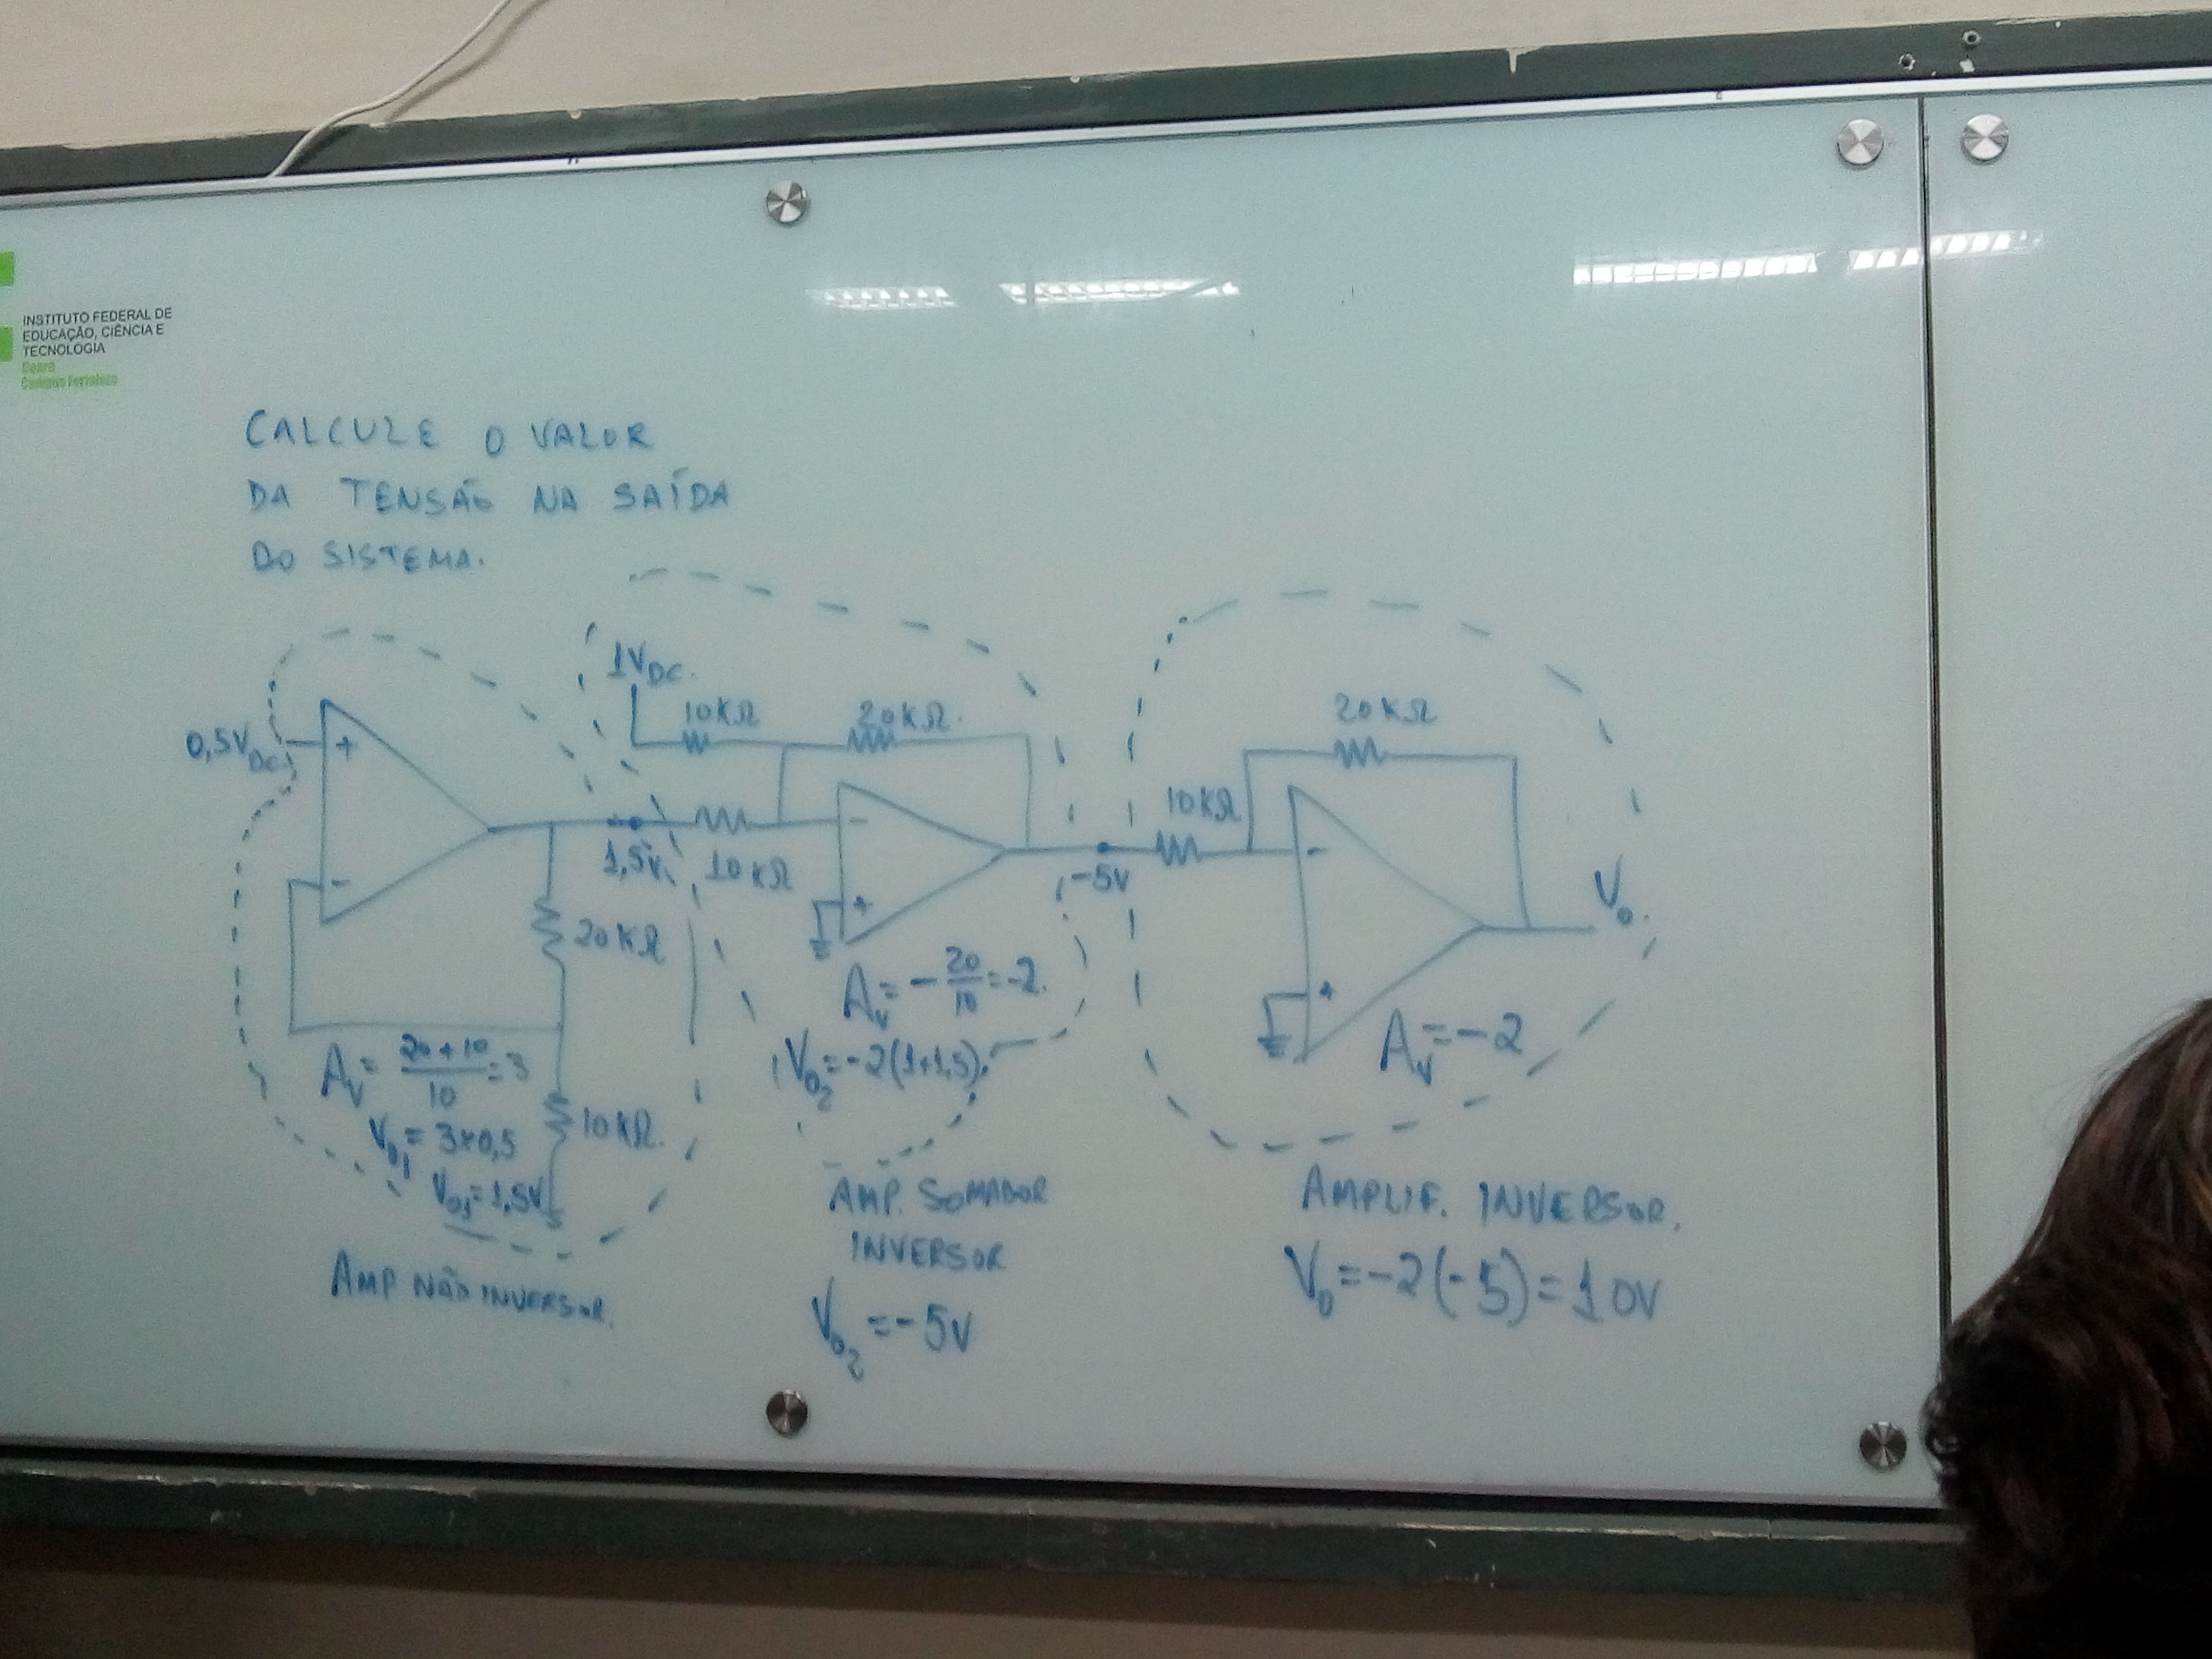 INSTITUTO FEDERAL DE
EDUCAÇÃO, CIÊNCIA E
TECNOLOGIA
Ceará
Campus Fortaleza
CALCULE O VALOR
DA TENSÃO NA SAÍDA
DO SISTEMA.
0,5VDC
+
-
1,5V
20KΩ
10KΩ.
Av = (20+10)/10 = 3
Vo1 = 3x0,5
Vo1 = 1,5V
AMP NÃO INVERSOR.
1VDC.
10KΩ
20KΩ.
10KΩ
-
+
-5V
Av = -20/10 = -2.
Vo2 = -2(1+1,5).
AMP. SOMADOR
INVERSOR
Vo2 = -5V
20KΩ
10KΩ
-
+
Vo.
Av = -2
AMPLIF. INVERSOR.
Vo = -2(-5) = 10V